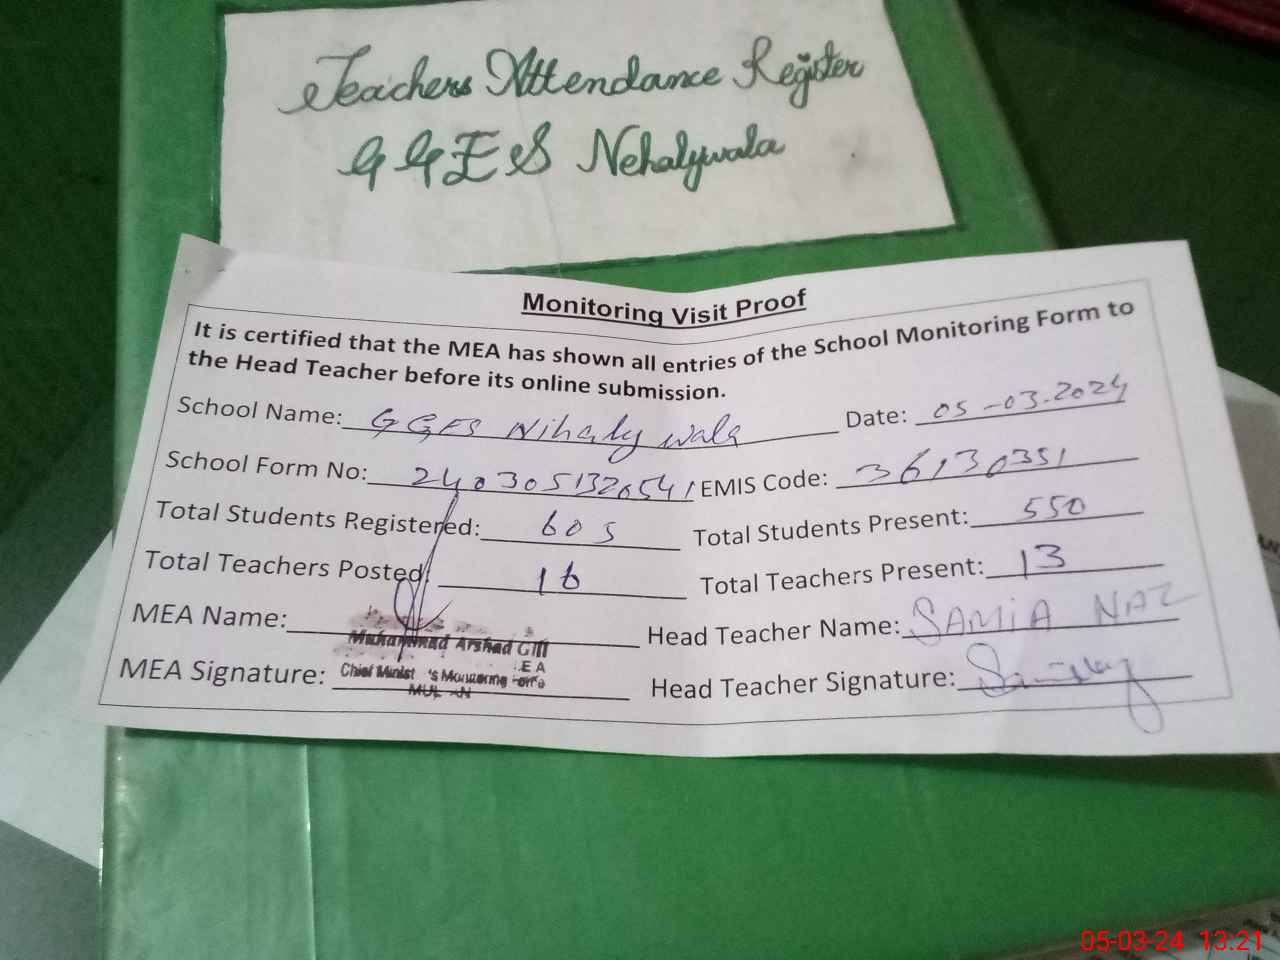 Teachers Attendance Register
GGES Nehalywala
Monitoring Visit Proof
It is certified that the MEA has shown all entries of the School Monitoring Form to
the Head Teacher before its online submission.
School Name: GGES Nihaly wala Date: 05-03-2024
School Form No: 2403051320541 EMIS Code: 36130351
Total Students Registered: 605 Total Students Present: 550
Total Teachers Posted: 16 Total Teachers Present: 13
MEA Name: Muhammad Arshad Gill Head Teacher Name: SAMIA NAZ
MEA Signature: Head Teacher Signature:
05-03-24 13:21